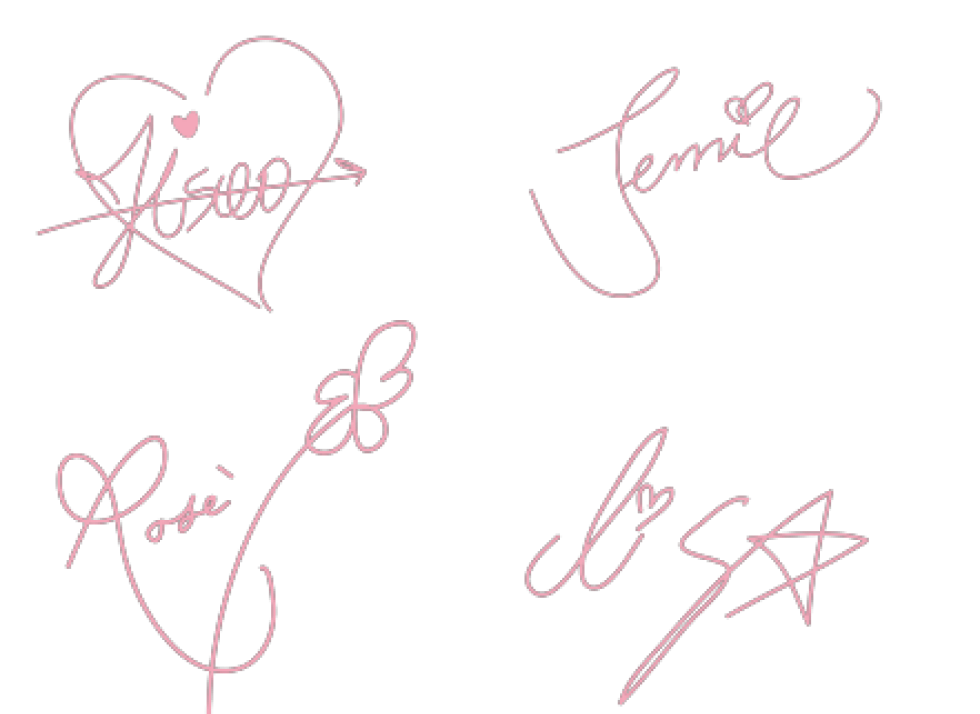 Jisoo
Jennie
Rosè
Lisa